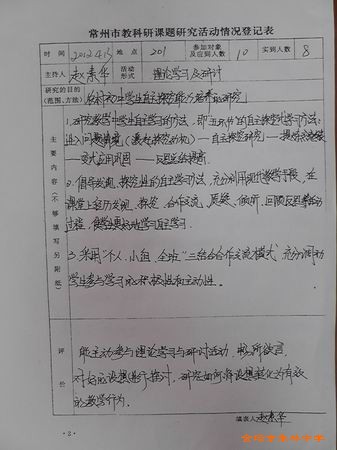 常州市教科研课题研究活动情况登记表
时间 2012.4.13 地点 201 参加对象及应到人数 10 实到人数 8
主持人 赵素华 活动形式 理论学习及研讨
研究的目的(范围、方法) 农村初中学生自主探究能力培养的研究
主要内容(不够填写另附纸)
1.研究数学中学生自主学习的方法,即"五环节"的自主探究化学习方法:
进入问题情境 —— 自主探究研究 —— 提炼点突破
—— 变式应用巩固 —— 反思总结提高.
2.倡导发现、探究性的自主学习方法,充分利用现代教学手段,在
课堂上经历发现、探究、合作交流、质疑、倾听、回顾反思等学习
过程,使学生更好地学习自主学习.
3.采用"个人、小组、全班"三结合合作交流模式,充分调动
学生参与学习的积极性和主动性.
评价
能主动参与理论学习与研讨活动,
对好的设想进行探讨,研究如何将设想转化为有效
的教学行为.
填表人 赵素华
·2·